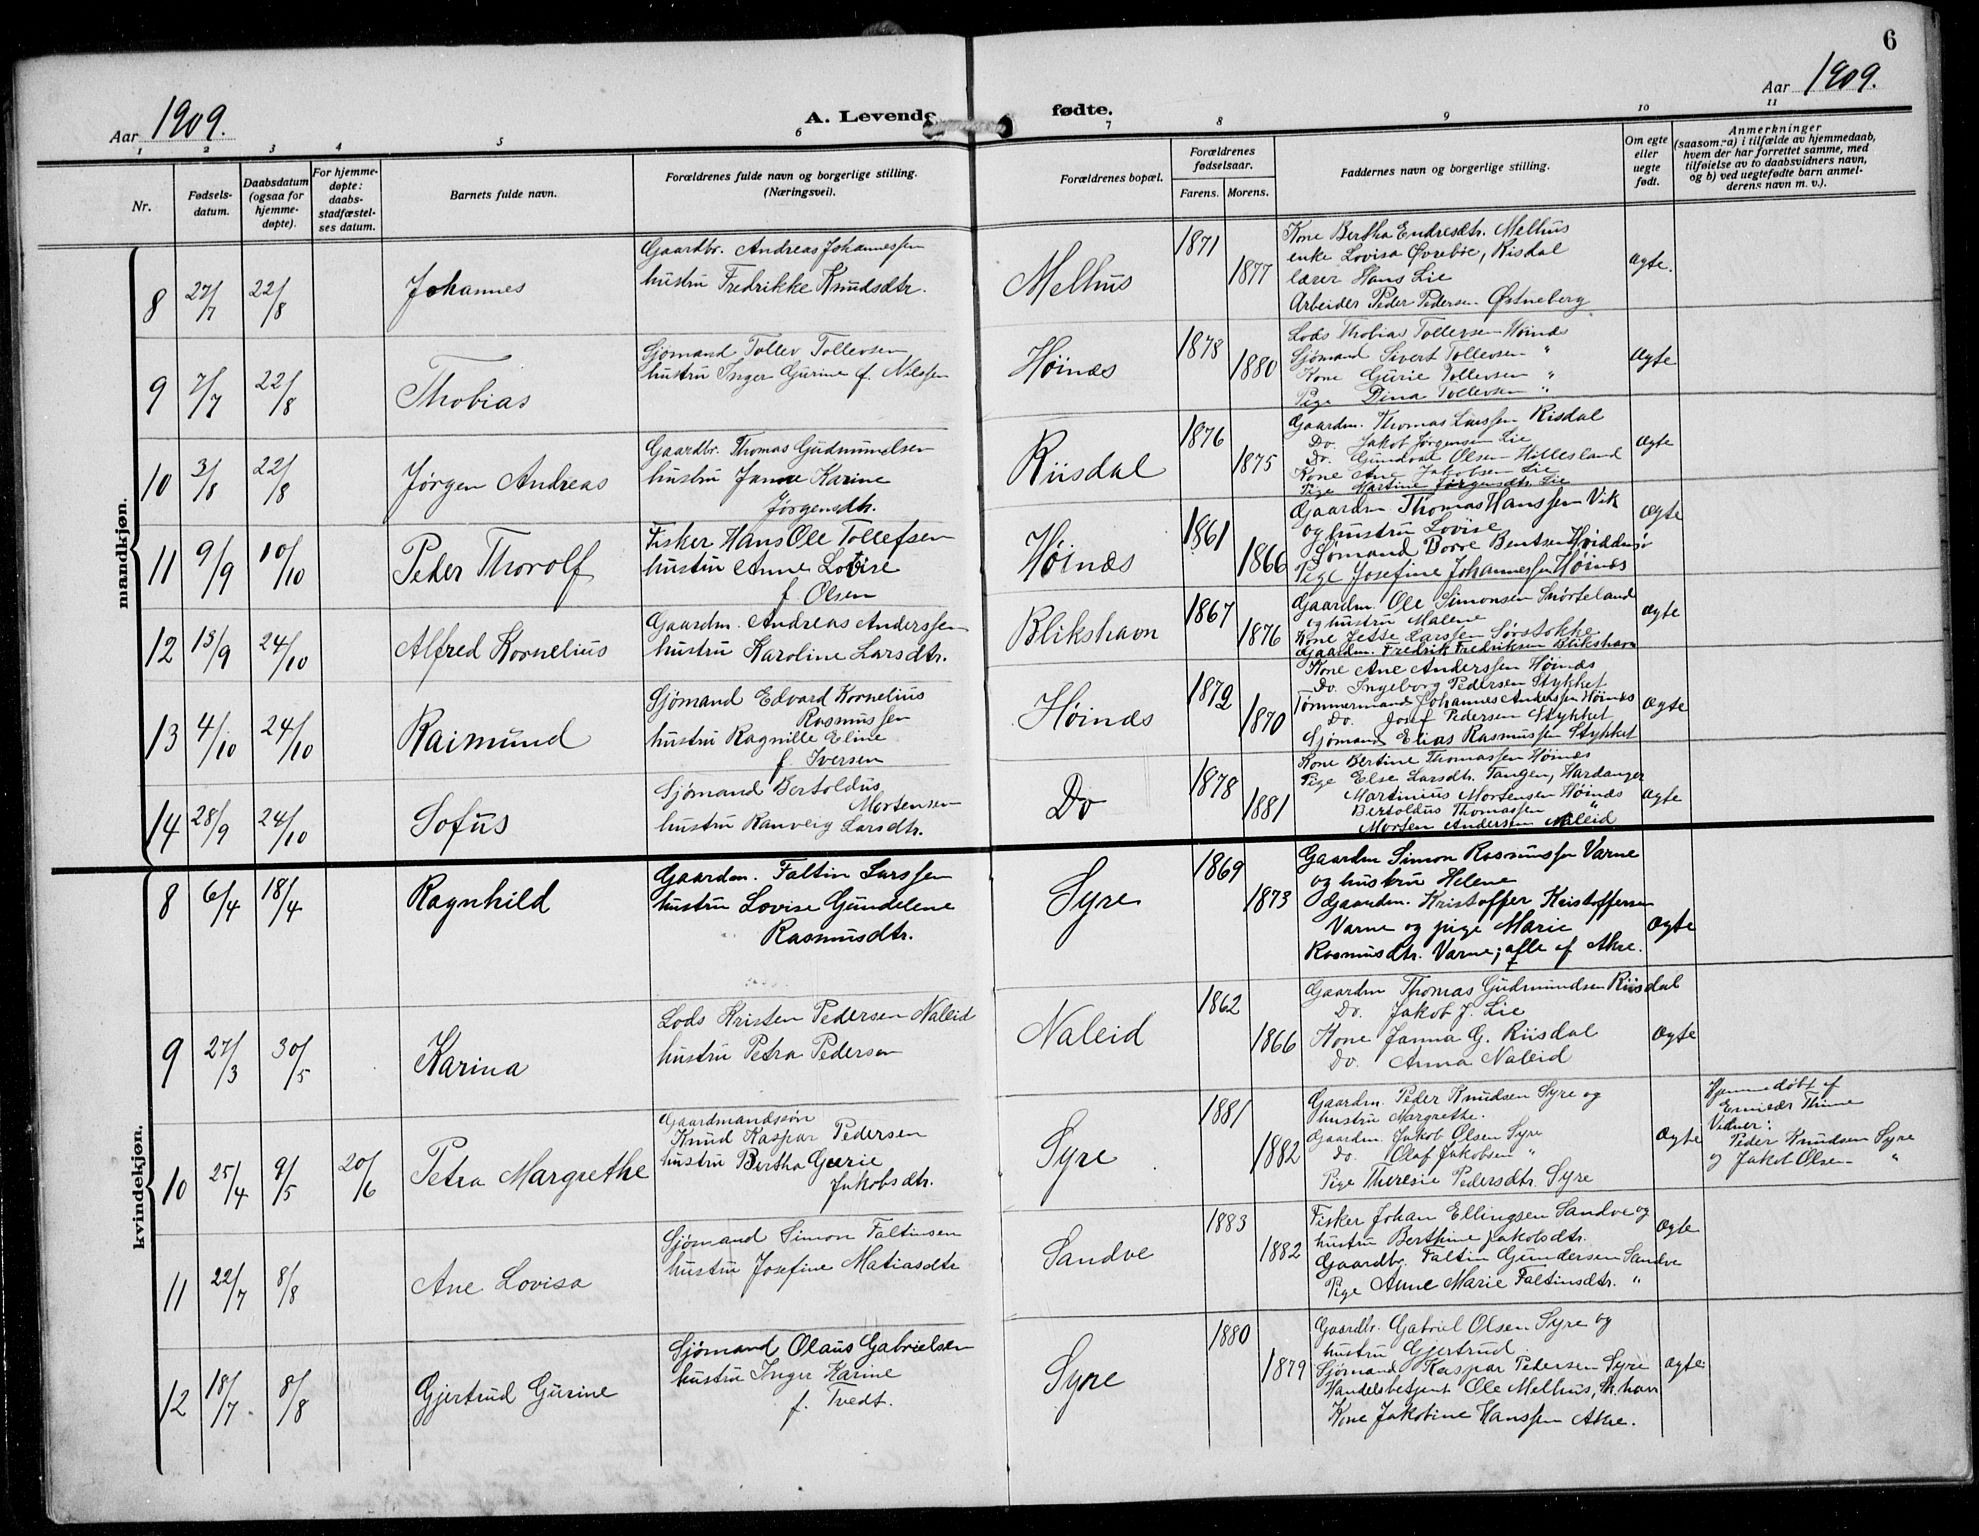 6
Aar 1909.
A. Levende fødte.
Aar 1909.
1 2 3 4 5 6 7 8 9 10 11
Nr.
Fødsels-
datum.
Daabsdatum
(ogsaa for
hjemme-
døpte).
For hjemme-
døpte:
daabs-
stadfæstel-
ses datum.
Barnets fulde navn.
Forældrenes fulde navn og borgerlige stilling.
(Næringsvei).
Forældrenes bopæl.
Forældrenes
fødselsaar.
Farens. Morens.
Faddernes navn og borgerlige stilling.
Om egte
eller
uegte
født.
Anmerkninger
(saasom: a) i tilfælde av hjemmedaab,
hvem der har forrettet samme, med
tilføielse av to daabsvidners navn,
og b) ved uegtefødte barn anmel-
derens navn m. v.).
mandkjøn.
8 27/7 22/8 Johannes
Gaardbr. Andreas Johannessen
hustru Fredrikke Knudsdtr.
Melhus
1871 1877
Kone Bertha Endresdtr. Melhus
enke Lovisa Øvrebøe, Risdal
lærer Hans Lie
Arbeider Peder Pedersen Østneberg
Ægte.
9 7/7 22/8 Thobias
Sjømand Tollev Tollevsen
hustru Inger Gurine f. Nilssen
Høinæs
1878 1880
Lods Thobias Tollevsen Høinæs
Sjømand Sivert Tollevsen "
Kone Gurie Tollevsen "
Pige Dina Tollevsen "
Ægte
10 3/8 22/8 Jørgen Andreas
Gaardbr. Thomas Gudmundsen
hustru Janne Karine
Jørgensdtr.
Riisdal
1876 1875
Gaardm. Thomas Larssen Risdal
Do. Jakob Jørgensen Lie
Do. Gundval Olsen Hillesland
Kone Ane Jakobsen Lie
Pige Martine Jørgensdtr. Lie
Ægte
11 9/9 10/10 Peder Thorolf
Fisker Hans Ole Tollefsen
hustru Anne Lovise
f. Olsen
Høinæs
1861 1866
Gaardm Thomas Hanssen Vik
og hustru Lovise
Sømand Borre Bentsen
Pige Josefine Johannessen Høinæs
Ægte
12 15/9 24/10 Alfred Kornelius
Gaardm. Andreas Anderssen
hustru Karoline Larsdtr.
Blikshavn
1867 1876
Gaardm. Ole Simonsen Snørteland
og hustru Malene
Kone Jette Larssen Sørstokke
Gaardm. Fredrik Fredriksen Blikshavn
Ægte
13 4/10 24/10 Raimund
Sjømand Edvard Kornelius
Rasmussen
hustru Ragnille Eline
f. Iversen
Høinæs
1872 1870
Kone Ane Anderssen Høinæs
Do. Ingeborg Pedersen Stykket
Tømmermand Johannes Andersen Høinæs
Do. Josef Pedersen Stykket
Sjømand Elias Rasmussen Stykket
Ægte
14 28/9 24/10 Sofus
Sjømand Bertoldus
Mortensen
hustru Ranveig Larsdtr.
Do
1878 1881
Kone Bertine Thomassen Høinæs
Pige Else Larsdtr. Tangen, Hardanger
Martinius Mortensen Høinæs
Bertoldus Thomassen "
Morten Andersen Naleid
Ægte
kvindekjøn.
8 6/4 18/4 Ragnhild
Gaardm. Faltin Larssen
hustru Lovise Gundelene
Rasmusdtr.
Syre
1869 1873
Gaardm Simon Rasmussen Varne
og hustru Helene
Gaardm. Kristoffer Kristoffersen
Varne og pige Marie
Rasmusdtr. Varne; afle af Akre.
Ægte
9 27/3 30/5 Karina
Lods Kristen Pedersen Naleid
hustru Petra Pedersen
Naleid
1862 1866
Gaardm Thomas Gudmundsen Riisdal
Do. Jakob J. Lie
Kone Janna G. Riisdal
Do. Anna Naleid
Ægte
10 25/4 9/5 20/6 Petra Margrethe
Gaardmandssøn
Knud Kaspar Pedersen
hustru Bertha Gurie
Jakobsdtr.
Syre
1881 1882
Gaardm. Peder Knudsen Syre og
hustru Margrethe.
Gaardm. Jakob Olsen Syre
do. Olaf Jakobsen "
Pige Theresie Pedersdtr. Syre
Ægte
Hjemmedøbt af
Thime
Vidner:
Peder Knudsen Syre
og Jakob Olsen "
11 22/7 8/8 Ane Lovisa
Sjømand Simon Faltinsen
hustru Josefine Matiasdtr
Sandve
1883 1882
Fisker Johan Ellingsen Sandve og
hustru Berthine Jakobsdtr.
Gaardbr. Faltin Gundersen Sandve
Pige Anne Marie Faltinsdtr. "
Ægte
12 18/7 8/8 Gjertrud Gurine
Sjømand Olaus Gabrielsen
hustru Inger Karine
f. Tvedt.
Syre
1880 1879
Gaardbr. Gabriel Olsen Syre og
hustru Gjertrud.
Sjømand Kaspar Pedersen Syre
Handelsbetjent Ole Melhus,
Kone Jakobine Hanssen Akre.
Ægte